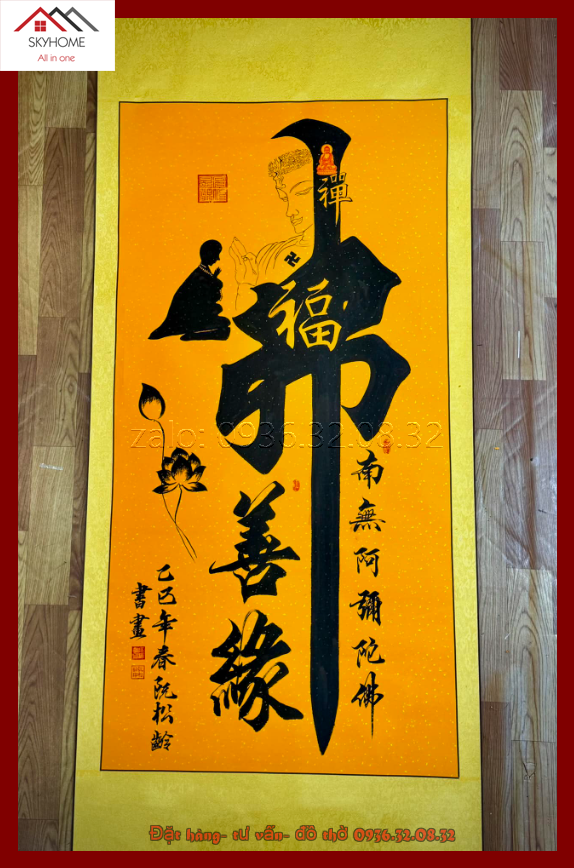 SKYHOME
All in one
禪
卍
福
佛
善緣
南無阿彌陀佛
乙巳年春阮松齡
書畫
zalo: 0936.32.08.32
Đặt hàng- tư vấn- đồ thờ 0936.32.08.32